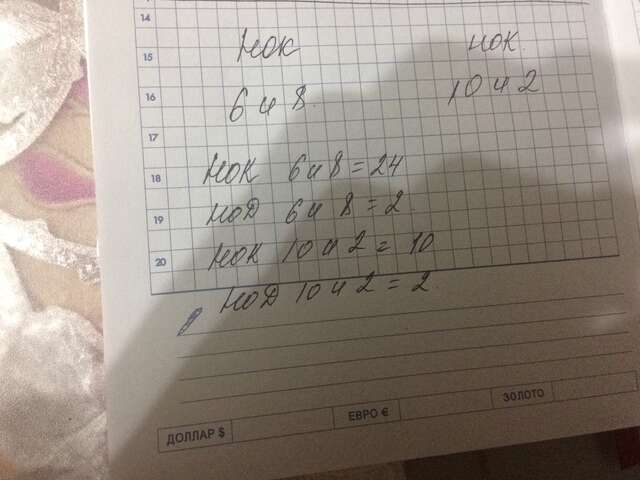 14
15 НОК НОК.
16 6 и 8 10 и 2
17
18 НОК 6 и 8 = 24
19 НОД 6 и 8 = 2
20 НОК 10 и 2 = 10
НОД 10 и 2 = 2
ДОЛЛАР $ ЕВРО € ЗОЛОТО